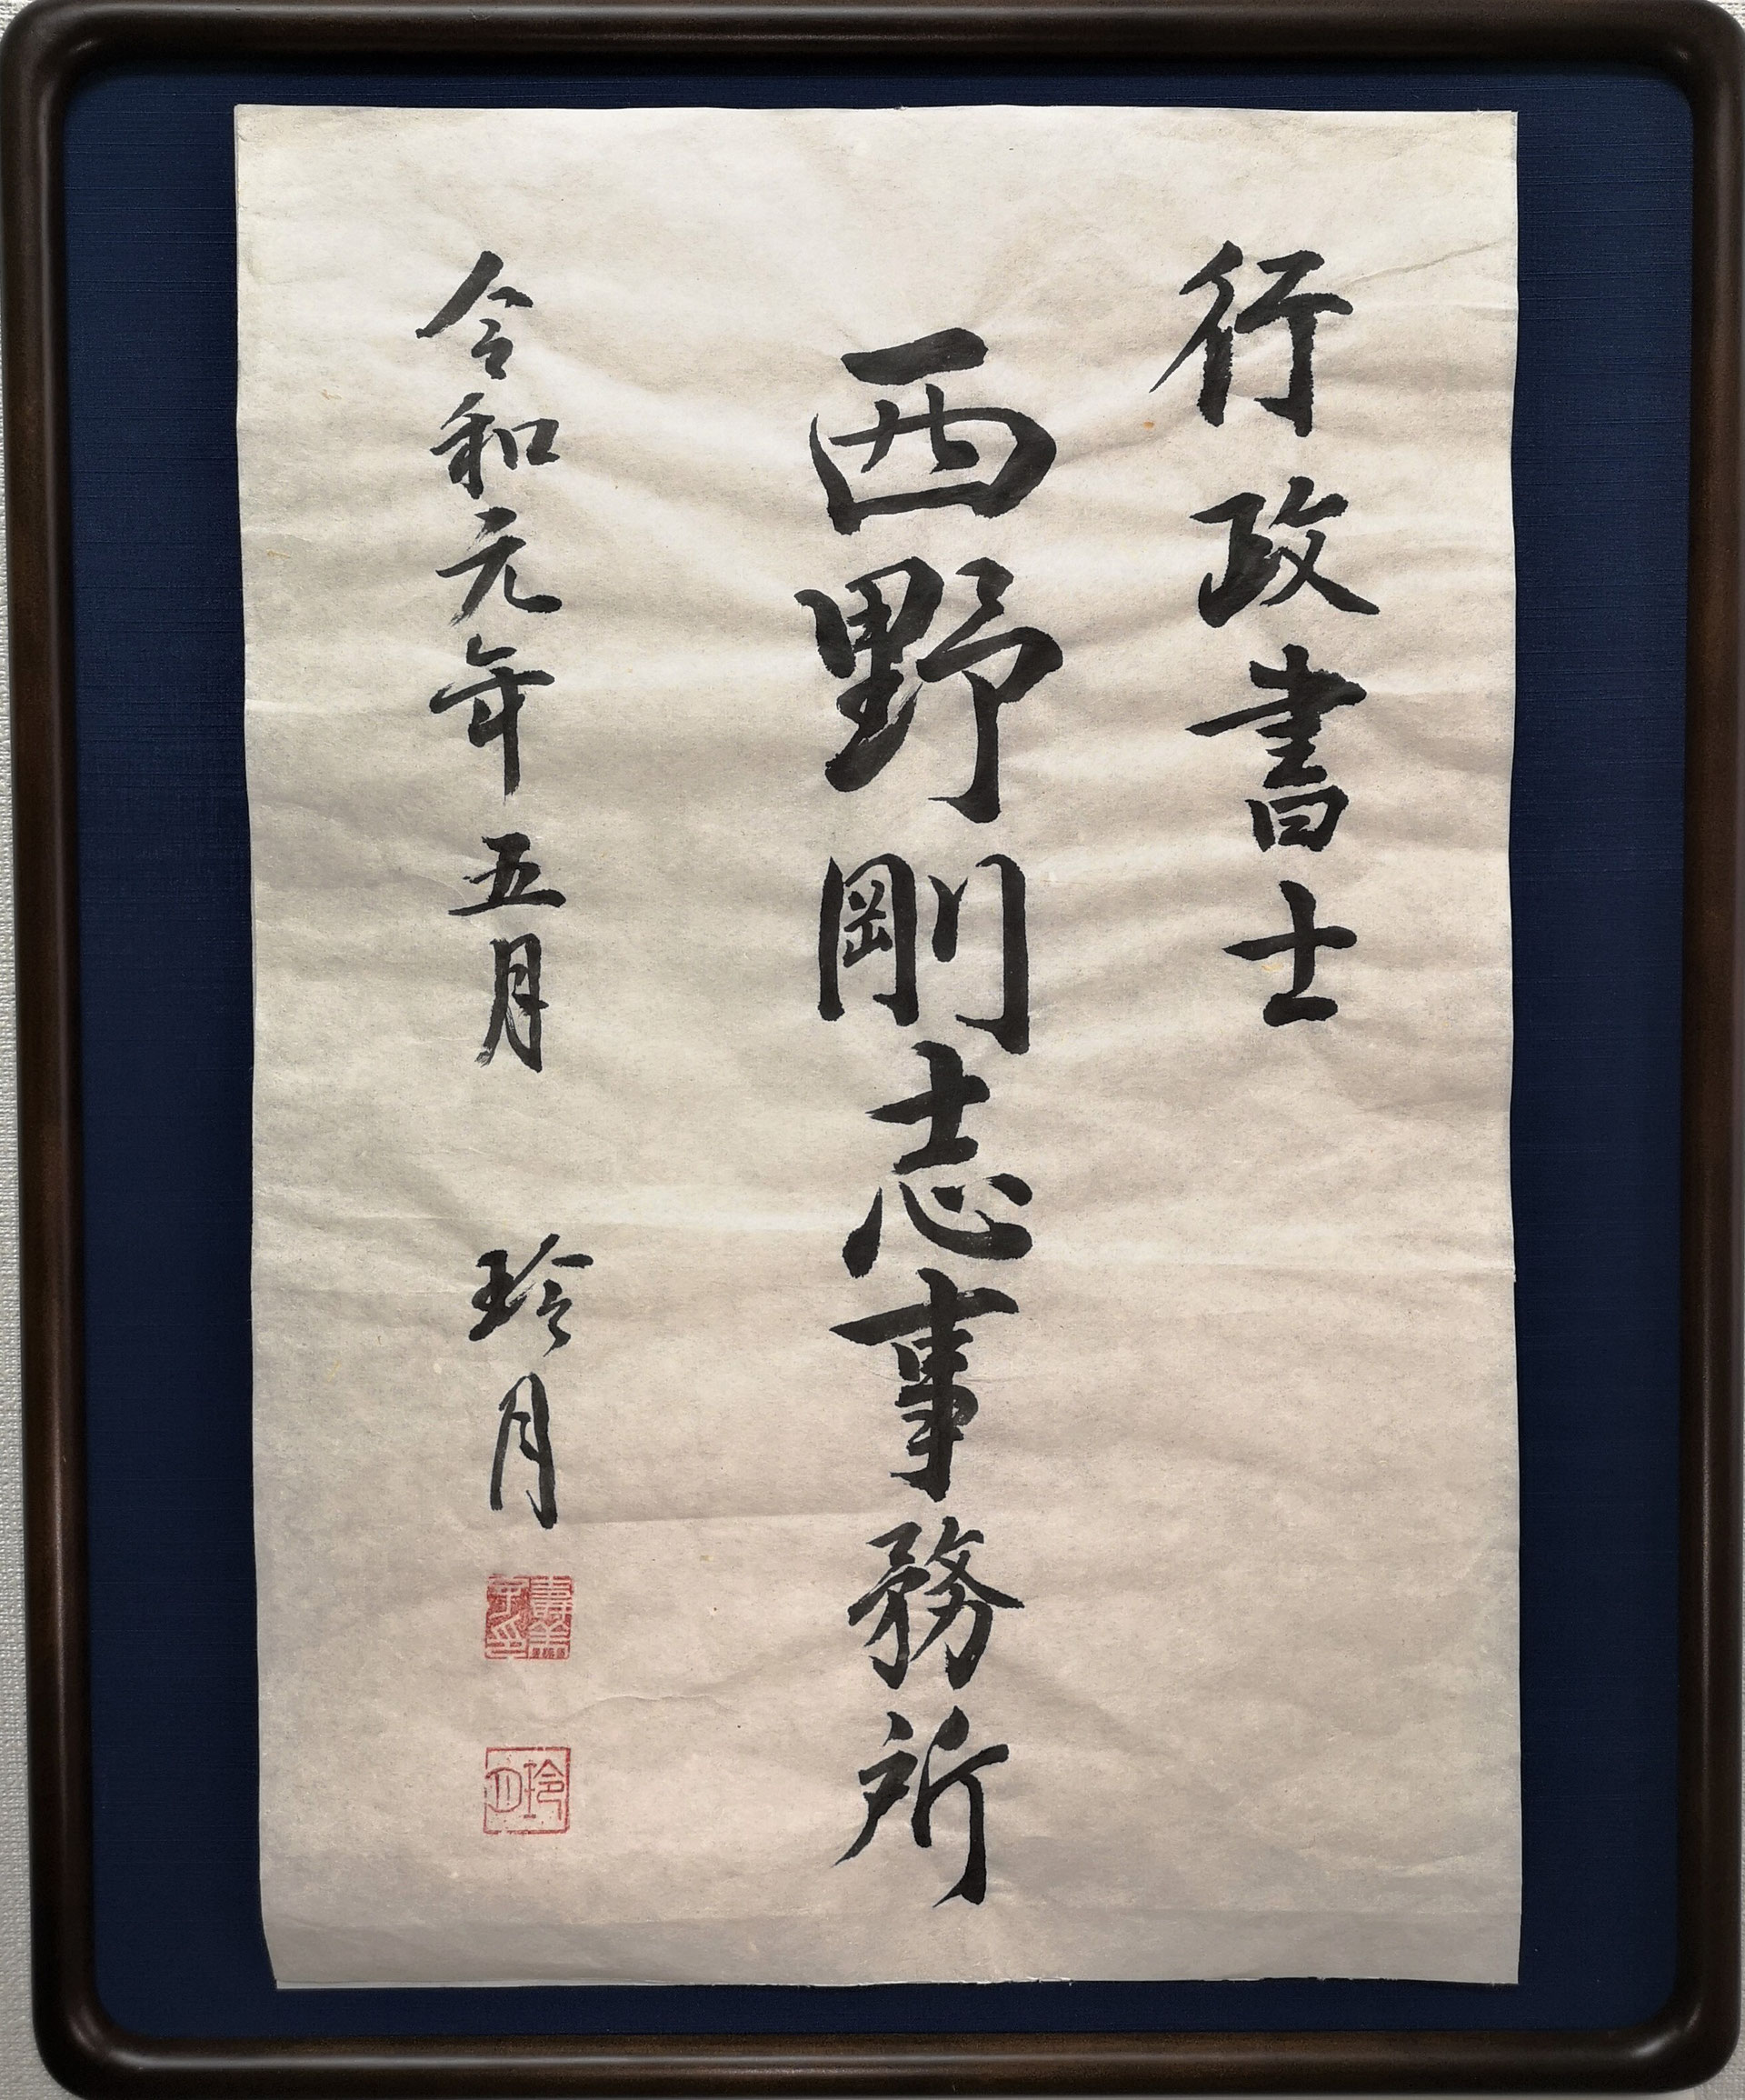 行政書士
西野剛志事務所
令和元年五月 玲月
玲月